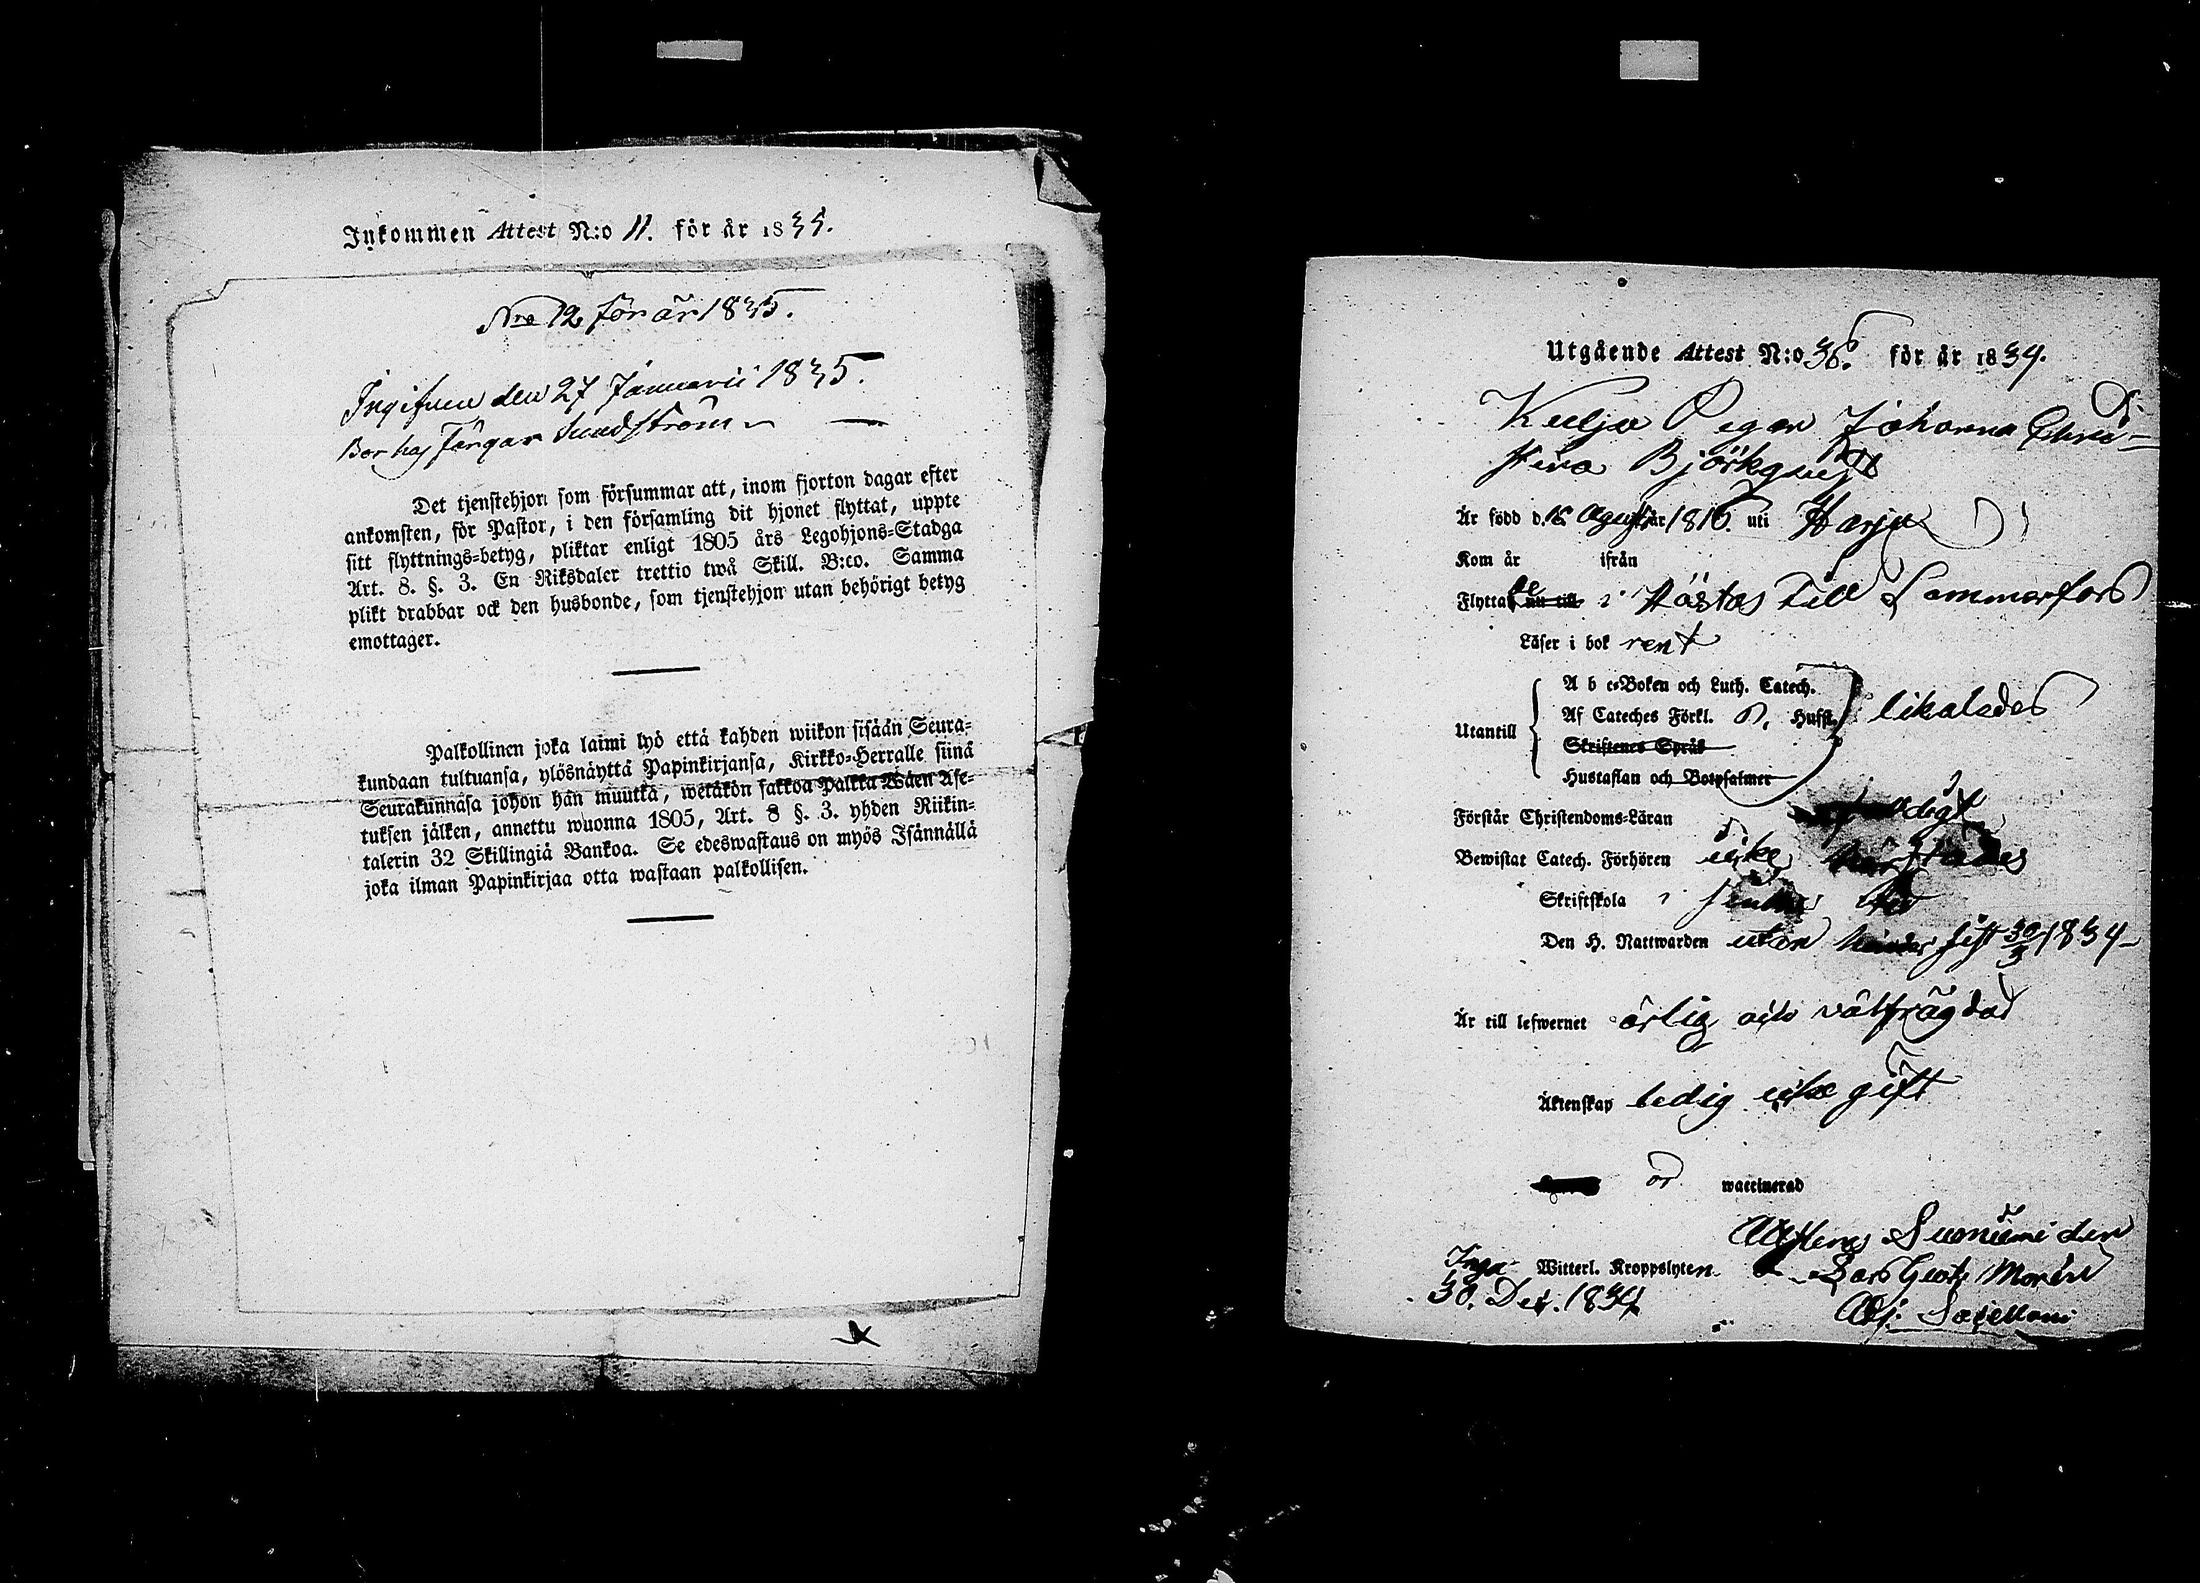 Inkommen Attest N:o 11. för år 1835.
Nro 12 för år 1835.
Ingifven den 27 Januarii 1835.
Bor hos Färgar Sundström
Det tjenstehjon som försummar att, inom fjorton dagar efter
ankomsten, för Pastor, i den församling dit hjonet flyttat, uppte
sitt flyttnings-betyg, pliktar enligt 1805 års Legohjons-Stadga
Art. 8. §. 3. En Riksdaler trettio twå Skill. B:co. Samma
plikt drabbar ock den husbonde, som tjenstehjon utan behörigt betyg
emottager.
Palkollinen joka laimi lyö että kahden wiikon sisään Seura-
kundaan tultuansa, ylösnäyttä Papinkirjansa, Kirkko-Herralle siinä
Seurakunnasa johon hän muutta, wetäkön sakkoa Palkka Wäen Ase-
tuksen jälken, annettu wuonna 1805, Art. 8 §. 3. yhden Riikin-
talerin 32 Skillingiä Bankoa. Se edeswastaus on myös Isännällä
joka ilman Papinkirjaa otta wastaan palkollisen.
Utgående Attest N:o 36. för år 1834.
Pigan Johanna Chris-
tina Björkqvist
Är född d. 16 Augusti år 1816. uti Harju
Kom år ifrån
Flyttade nu till i Höstas till Lammarfors
Läser i bok rent
A b c-Boken och Luth. Catech.
Utantill Af Cateches Förkl. o. Husst. likaledes
Skriftenes Språk
Hustaflan och Botpsalmer
Förstår Christendoms-Läran
Bewistat Catech. Förhören icke
Skriftskola i
Den H. Nattwarden utan hinder sist 30/3 1834
Är till lefwernet ärlig och välfrägdad
Äktenskap ledig icke gift
är waccinerad
Suoniemi den
Inga Witterl. Kroppslyten. Lars Gust. Morén
30. Dec. 1834 Adj. Sacellani